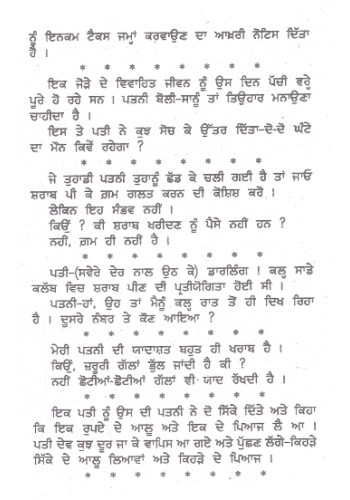 ਨੂੰ ਇਨਕਮ ਟੈਕਸ ਜਮ੍ਹਾਂ ਕਰਵਾਉਣ ਦਾ ਆਖ਼ਰੀ ਨੋਟਿਸ ਦਿੱਤਾ
ਹੈ ।
* * * * * * * *
ਇਕ ਜੋੜੇ ਦੇ ਵਿਵਾਹਿਤ ਜੀਵਨ ਨੂੰ ਉਸ ਦਿਨ ਪੱਚੀ ਵਰ੍ਹੇ
ਪੂਰੇ ਹੋ ਰਹੇ ਸਨ । ਪਤਨੀ ਬੋਲੀ-ਸਾਨੂੰ ਤਾਂ ਤਿਉਹਾਰ ਮਨਾਉਣਾ
ਚਾਹੀਦਾ ਹੈ ।
ਇਸ ਤੇ ਪਤੀ ਨੇ ਕੁਝ ਸੋਚ ਕੇ ਉੱਤਰ ਦਿੱਤਾ-ਦੋ-ਦੋ ਘੰਟੇ
ਦਾ ਮੌਨ ਕਿਵੇਂ ਰਹੇਗਾ ?
* * * * * * * *
ਜੇ ਤੁਹਾਡੀ ਪਤਨੀ ਤੁਹਾਨੂੰ ਛੱਡ ਕੇ ਚਲੀ ਗਈ ਹੈ ਤਾਂ ਜਾਓ
ਸ਼ਰਾਬ ਪੀ ਕੇ ਗ਼ਮ ਗਲਤ ਕਰਨ ਦੀ ਕੋਸ਼ਿਸ਼ ਕਰੋ ।
ਲੇਕਿਨ ਇਹ ਸੰਭਵ ਨਹੀਂ ।
ਕਿਉਂ ? ਕੀ ਸ਼ਰਾਬ ਖਰੀਦਣ ਨੂੰ ਪੈਸੇ ਨਹੀਂ ਹਨ ?
ਨਹੀਂ, ਗ਼ਮ ਹੀ ਨਹੀਂ ਹੈ ।
* * * * * * * *
ਪਤੀ-(ਸਵੇਰੇ ਦੇਰ ਨਾਲ ਉਠ ਕੇ) ਡਾਰਲਿੰਗ ! ਕਲ੍ਹ ਸਾਡੇ
ਕਲੱਬ ਵਿਚ ਸ਼ਰਾਬ ਪੀਣ ਦੀ ਪ੍ਰਤੀਯੋਗਿਤਾ ਹੋਈ ਸੀ ।
ਪਤਨੀ-ਹਾਂ, ਉਹ ਤਾਂ ਮੈਨੂੰ ਕਲ੍ਹ ਰਾਤ ਤੋਂ ਹੀ ਦਿਖ ਰਿਹਾ
ਹੈ । ਦੂਸਰੇ ਨੰਬਰ ਤੇ ਕੌਣ ਆਇਆ ?
* * * * * * * *
ਮੇਰੀ ਪਤਨੀ ਦੀ ਯਾਦਾਸ਼ਤ ਬਹੁਤ ਹੀ ਖਰਾਬ ਹੈ ।
ਕਿਉਂ, ਜ਼ਰੂਰੀ ਗੱਲਾਂ ਭੁੱਲ ਜਾਂਦੀ ਹੈ ਕੀ ?
ਨਹੀਂ ਛੋਟੀਆਂ-ਛੋਟੀਆਂ ਗੱਲਾਂ ਵੀ ਯਾਦ ਰੱਖਦੀ ਹੈ ।
* * * * * * * *
ਇਕ ਪਤੀ ਨੂੰ ਉਸ ਦੀ ਪਤਨੀ ਨੇ ਦੋ ਸਿੱਕੇ ਦਿੱਤੇ ਅਤੇ ਕਿਹਾ
ਕਿ ਇਕ ਰੁਪਏ ਦੇ ਆਲੂ ਅਤੇ ਇਕ ਦੇ ਪਿਆਜ ਲੈ ਆ ।
ਪਤੀ ਦੇਵ ਕੁਝ ਦੂਰ ਜਾ ਕੇ ਵਾਪਿਸ ਆ ਗਏ ਅਤੇ ਪੁੱਛਣ ਲੱਗੇ-ਕਿਹੜੇ
ਸਿੱਕੇ ਦੇ ਆਲੂ ਲਿਆਵਾਂ ਅਤੇ ਕਿਹੜੇ ਦੇ ਪਿਆਜ ।
* * * * * * * *